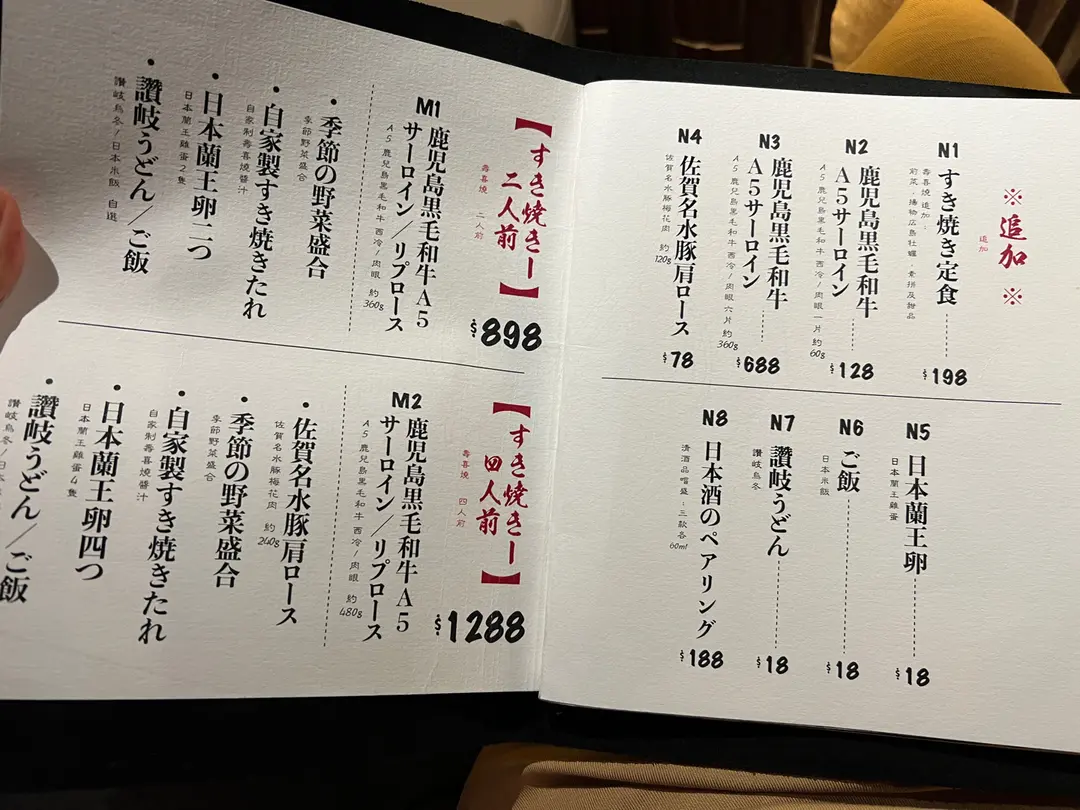 【すき焼きー二人前】
壽喜燒 二人前
$898
M1
鹿児島黒毛和牛A5
サーロイン/リブロース
A5 鹿兒島黒毛和牛 西冷/肉眼 約360g
・季節の野菜盛合
季節野菜盛合
・自家製すき焼きたれ
自家制壽喜燒醬汁
・日本蘭王卵二つ
日本蘭王雞蛋2隻
・讃岐うどん/ご飯
讃岐烏冬/日本米飯 自選
【すき焼きー四人前】
壽喜燒 四人前
$1288
M2
鹿児島黒毛和牛A5
サーロイン/リブロース
A5 鹿兒島黒毛和牛 西冷/肉眼 約480g
・佐賀名水豚肩ロース
佐賀名水豚梅花肉 約240g
・季節の野菜盛合
季節野菜盛合
・自家製すき焼きたれ
自家制壽喜燒醬汁
・日本蘭王卵四つ
日本蘭王雞蛋4隻
・讃岐うどん/ご飯
讃岐烏冬/日本
※追加※
追加
N1
すき焼き定食
壽喜燒 追加:
前菜, 揚物広島牡蠣, 素拼及甜品
$198
N2
鹿児島黒毛和牛
A5サーロイン
A5 鹿兒島黒毛和牛 西冷/肉眼 一片 約60g
$128
N3
鹿児島黒毛和牛
A5サーロイン
A5 鹿兒島黒毛和牛 西冷/肉眼 六片 約360g
$688
N4
佐賀名水豚肩ロース
佐賀名水豚梅花肉 約120g
$78
N5
日本蘭王卵
日本蘭王雞蛋
$18
N6
ご飯
日本米飯
$18
N7
讃岐うどん
讃岐烏冬
$18
N8
日本酒のペアリング
清酒品嚐盛, 三款各60ml
$188